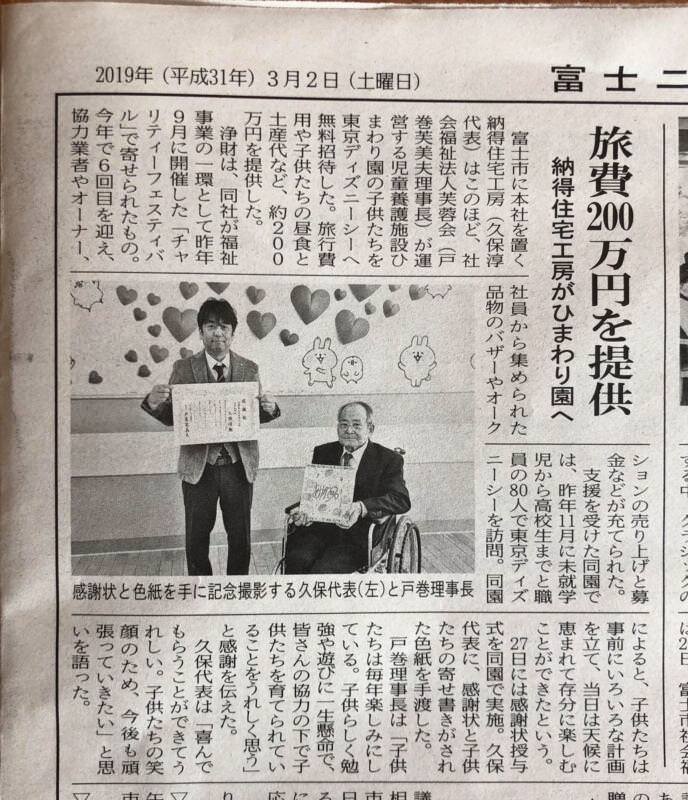 2019年（平成31年）3月2日（土曜日）
富士ニ
旅費200万円を提供
納得住宅工房がひまわり園へ
富士市に本社を置く
納得住宅工房（久保淳
代表）はこのほど、社
会福祉法人芙蓉会（戸
巻芙美夫理事長）が運
営する児童養護施設ひ
まわり園の子供たちを
東京ディズニーシーへ
無料招待した。旅行費
用や子供たちの昼食と
土産代など、約２００
万円を提供した。
浄財は、同社が福祉
事業の一環として昨年
９月に開催した「チャ
リティーフェスティバ
ル」で寄せられたもの。
今年で６回目を迎え、
協力業者やオーナー、
社員から集められた
品物のバザーやオーク
ションの売り上げと募
金などが充てられた。
支援を受けた同園で
は、昨年11月に未就学
児から高校生までと職
員の80人で東京ディズ
ニーシーを訪問。同園
によると、子供たちは
事前にいろいろな計画
を立て、当日は天候に
恵まれて存分に楽しむ
ことができたという。
27日には感謝状授与
式を同園で実施。久保
代表に、感謝状と子供
たちの寄せ書きがされ
た色紙を手渡した。
戸巻理事長は「子供
たちは毎年楽しみにし
ている。子供らしく勉
強や遊びに一生懸命で、
皆さんの協力の下で子
供たちを育てられてい
ることをうれしく思う」
と感謝を伝えた。
久保代表は「喜んで
もらうことができてう
れしい。子供たちの笑
顔のため、今後も頑
張っていきたい」と思
いを語った。
感謝状と色紙を手に記念撮影する久保代表（左）と戸巻理事長